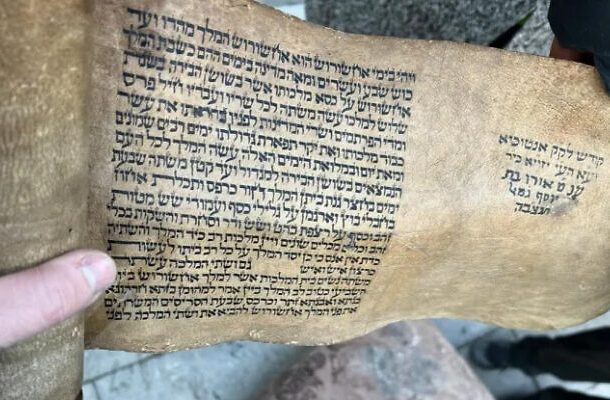 קודש לקק אנטוכיא
יוסף
תנצבה
ויהי בימי אחשורוש הוא אחשורוש המלך מהדו ועד
כוש שבע ועשרים ומאה מדינה בימים ההם כשבת המלך
אחשורוש על כסא מלכותו אשר בשושן הבירה בשנת
שלוש למלכו עשה משתה לכל שריו ועבדיו חיל פרס
ומדי הפרתמים ושרי המדינות לפניו בהראתו את עשר
כבוד מלכותו ואת יקר תפארת גדולתו ימים רבים שמונים
ומאת יום ובמלואת הימים האלה עשה המלך לכל העם
הנמצאים בשושן הבירה למגדול ועד קטן משתה שבעת
ימים בחצר גנת ביתן המלך חור כרפס ותכלת אחוז
בחבלי בוץ וארגמן על גלילי כסף ועמודי שש מטות
זהב וכסף על רצפת בהט ושש ודר וסחרת והשקות בכלי
זהב וכלים מכלים שונים ויין מלכות רב כיד המלך והשתיה
כדת אין אנס כי כן יסד המלך על כל רב ביתו לעשות
כרצון איש ואיש גם ושתי המלכה עשתה
משתה נשים בית המלכות אשר למלך אחשורוש ביום
השביעי כטוב לב המלך ביין אמר למהומן בזתא חרבונא
בגתא ואבגתא זתר וכרכס שבעת הסריסים המשרתים
את פני המלך אחשורוש להביא את ושתי המלכה לפני